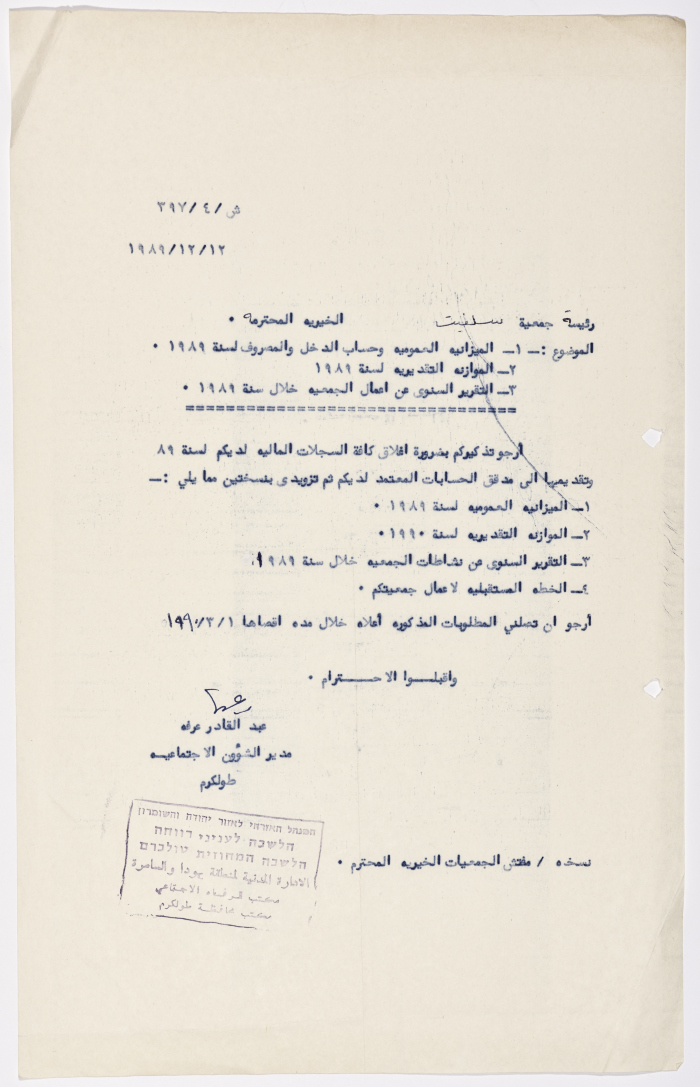 ش/٤/٣٩٧
١٩٨٩/١٢/١٢
رئيسة جمعية سلفيت الخيريه المحترمه ٠
الموضوع :ــ ١ــ الميزانيه العموميه وحساب الدخل والمصروف لسنة ١٩٨٩ ٠
٢ــ الموازنه التقديريه لسنة ١٩٨٩
٣ــ التقرير السنوى عن اعمال الجمعيه خلال سنة ١٩٨٩ ٠
================================
أرجو تذكيركم بضرورة اغلاق كافة السجلات الماليه لديكم لسنة ٨٩
وتقديمها الى مدقق الحسابات المعتمد لديكم ثم تزويدى بنسختين مما يلي :ــ
١ــ الميزانيه العموميه لسنة ١٩٨٩ ٠
٢ــ الموازنه التقديريه لسنة ١٩٩٠ ٠
٣ــ التقرير السنوى عن نشاطات الجمعيه خلال سنة ١٩٨٩٠
٤ــ الخطه المستقبليه لاعمال جمعيتكم ٠
أرجو ان تصلني المطلوبات المذكوره أعلاه خلال مده اقصاها ١٩٩٠/٣/١
واقبلـــوا الاحـــترام ٠
عبد القادر عرفه
مدير الشؤون الاجتماعيــه
طولكرم
המנהל האזרחי לאזור יהודה והשומרון
הלשכה לעניני רווחה
הלשכה המחוזית טולכרם
الادارة المدنية لمنطقة يهودا والسامرة
مكتب الرفاه الاجتماعي
مكتب محافظة طولكرم
نسخه / مفتش الجمعيات الخيريه المحترم ٠